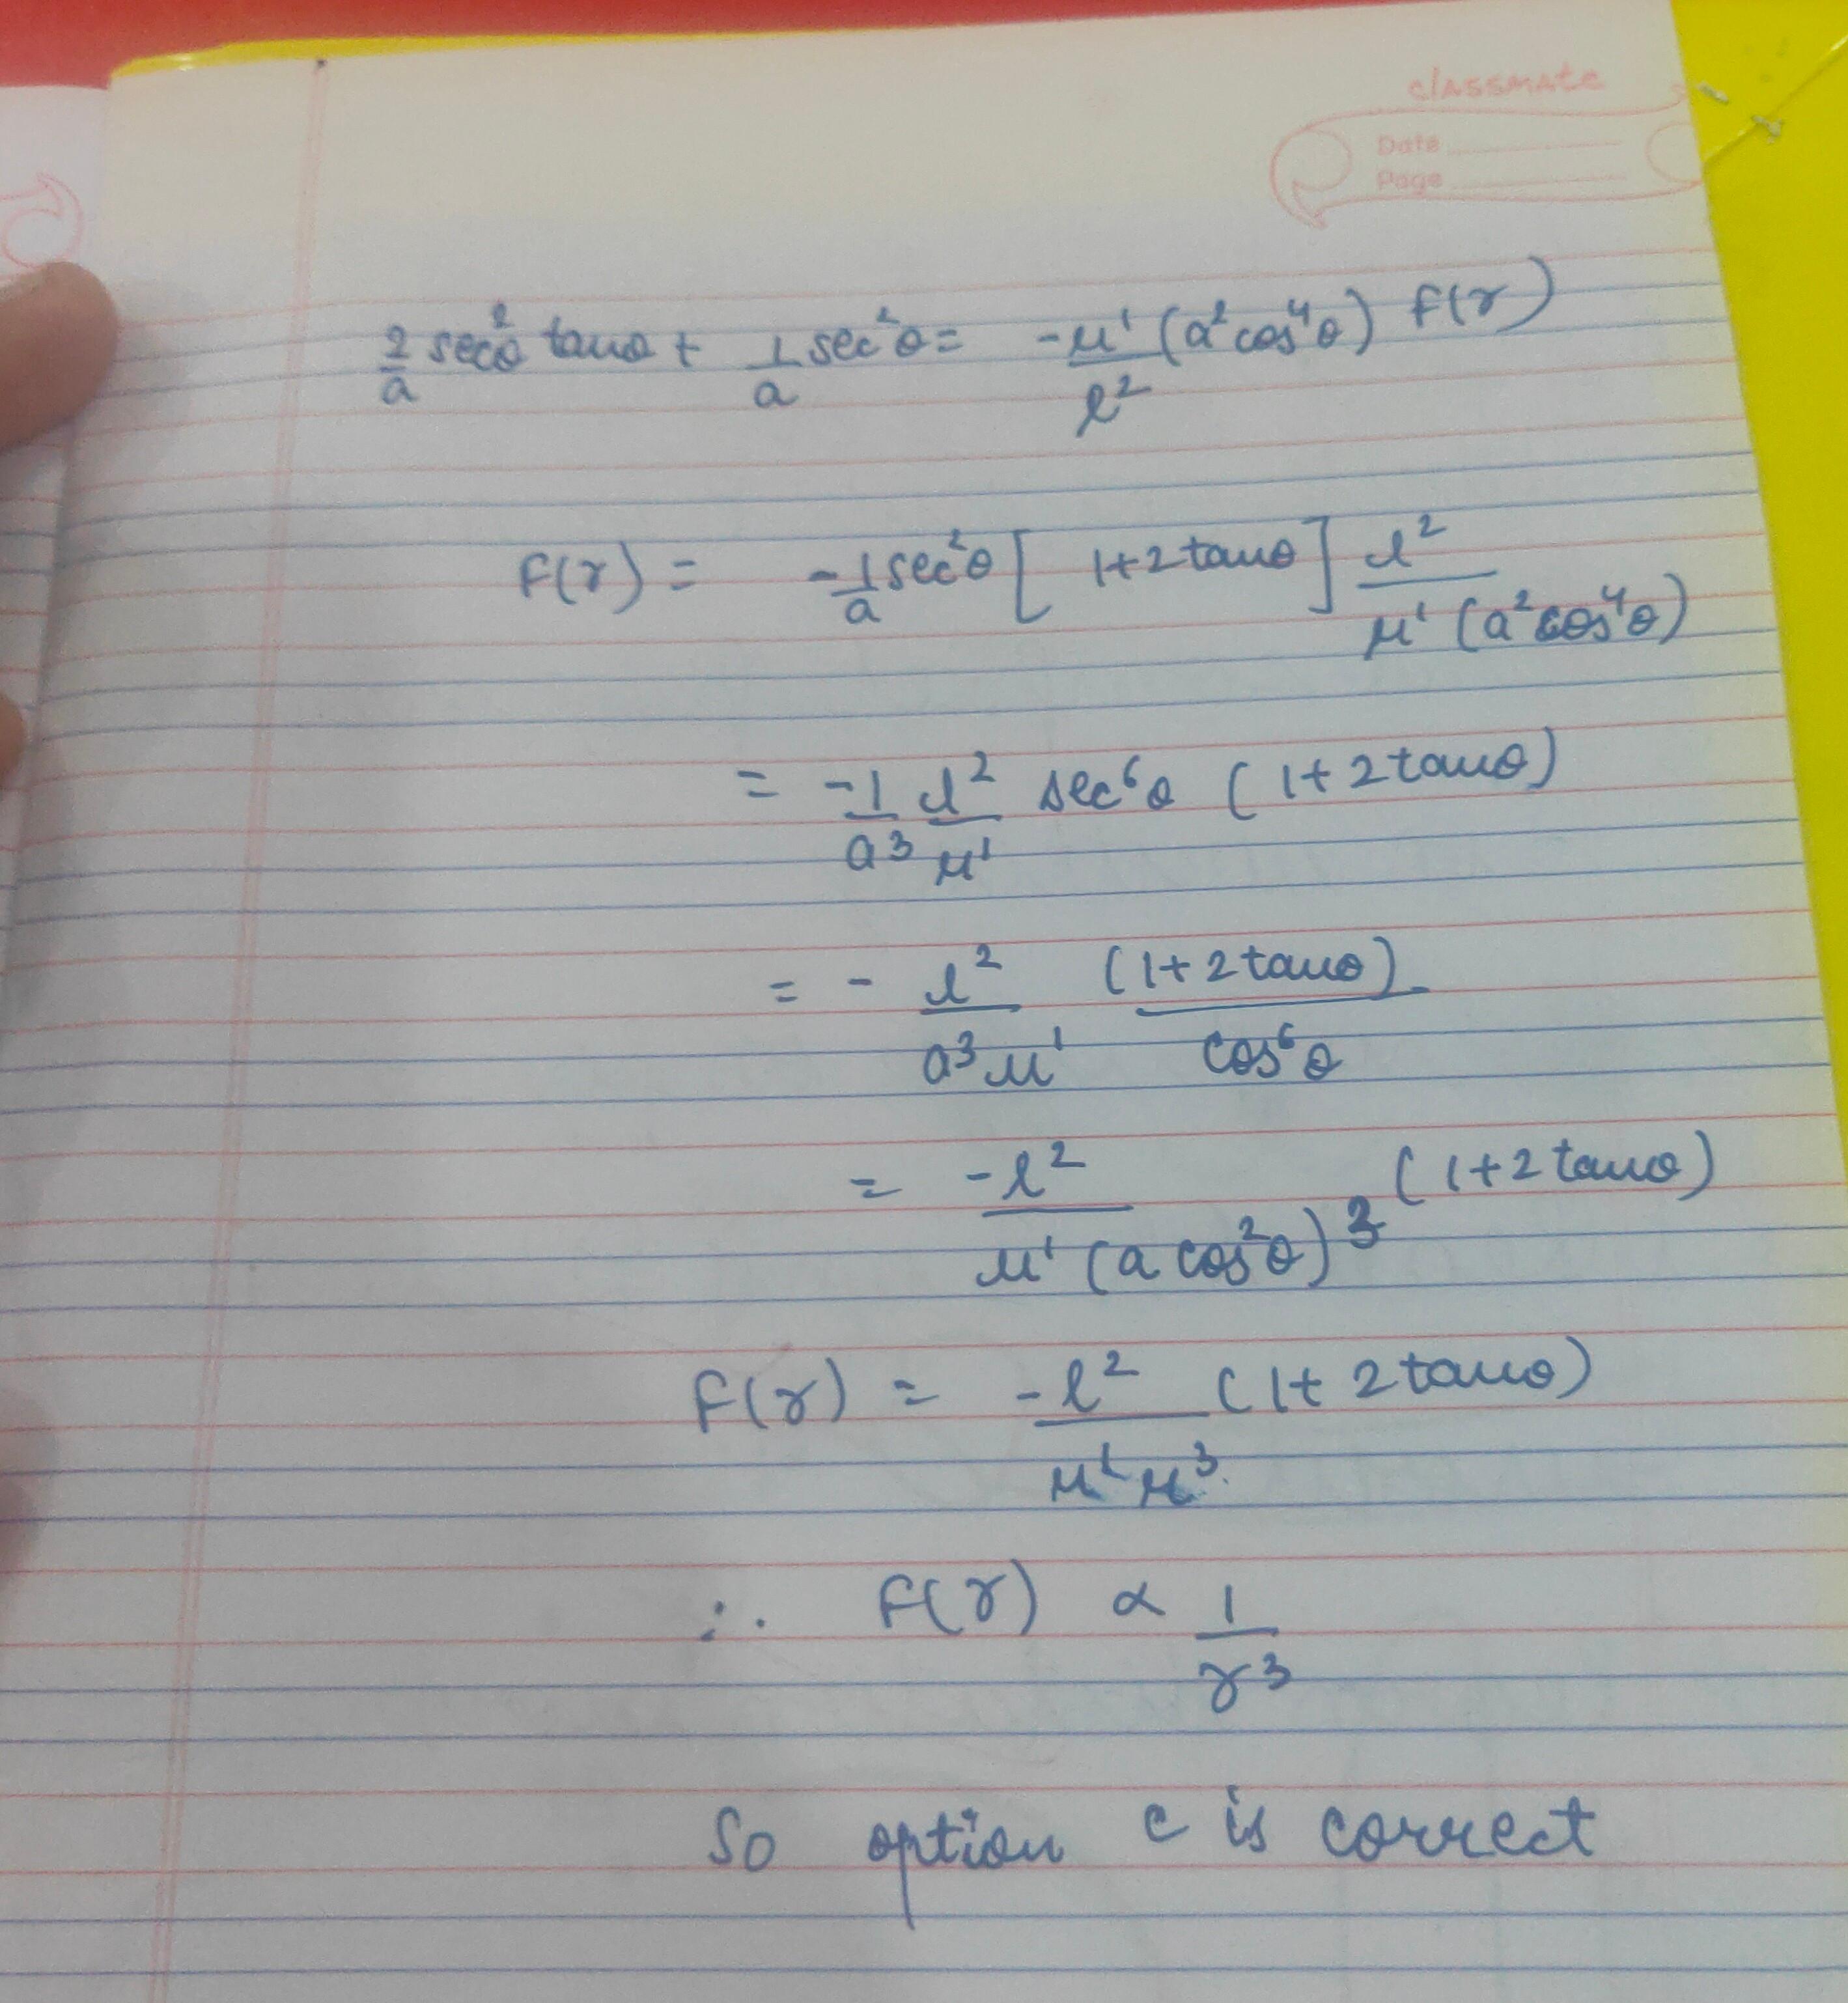 classmate
Date
Page
2/a sec²θ tanθ + 1/a sec²θ = -μ'/l² (a²cos⁴θ) F(r)
F(r) = -1/a sec²θ [1+2tanθ] l²/μ'(a²cos⁴θ)
= -1/a³ l²/μ' sec⁶θ (1+2tanθ)
= - l²/a³μ' (1+2tanθ)/cos⁶θ
= -l²/μ'(a cos²θ)³ (1+2tanθ)
F(r) = -l²/μ'μ³ (1+2tanθ)
∴ F(r) ∝ 1/r³
So option c is correct